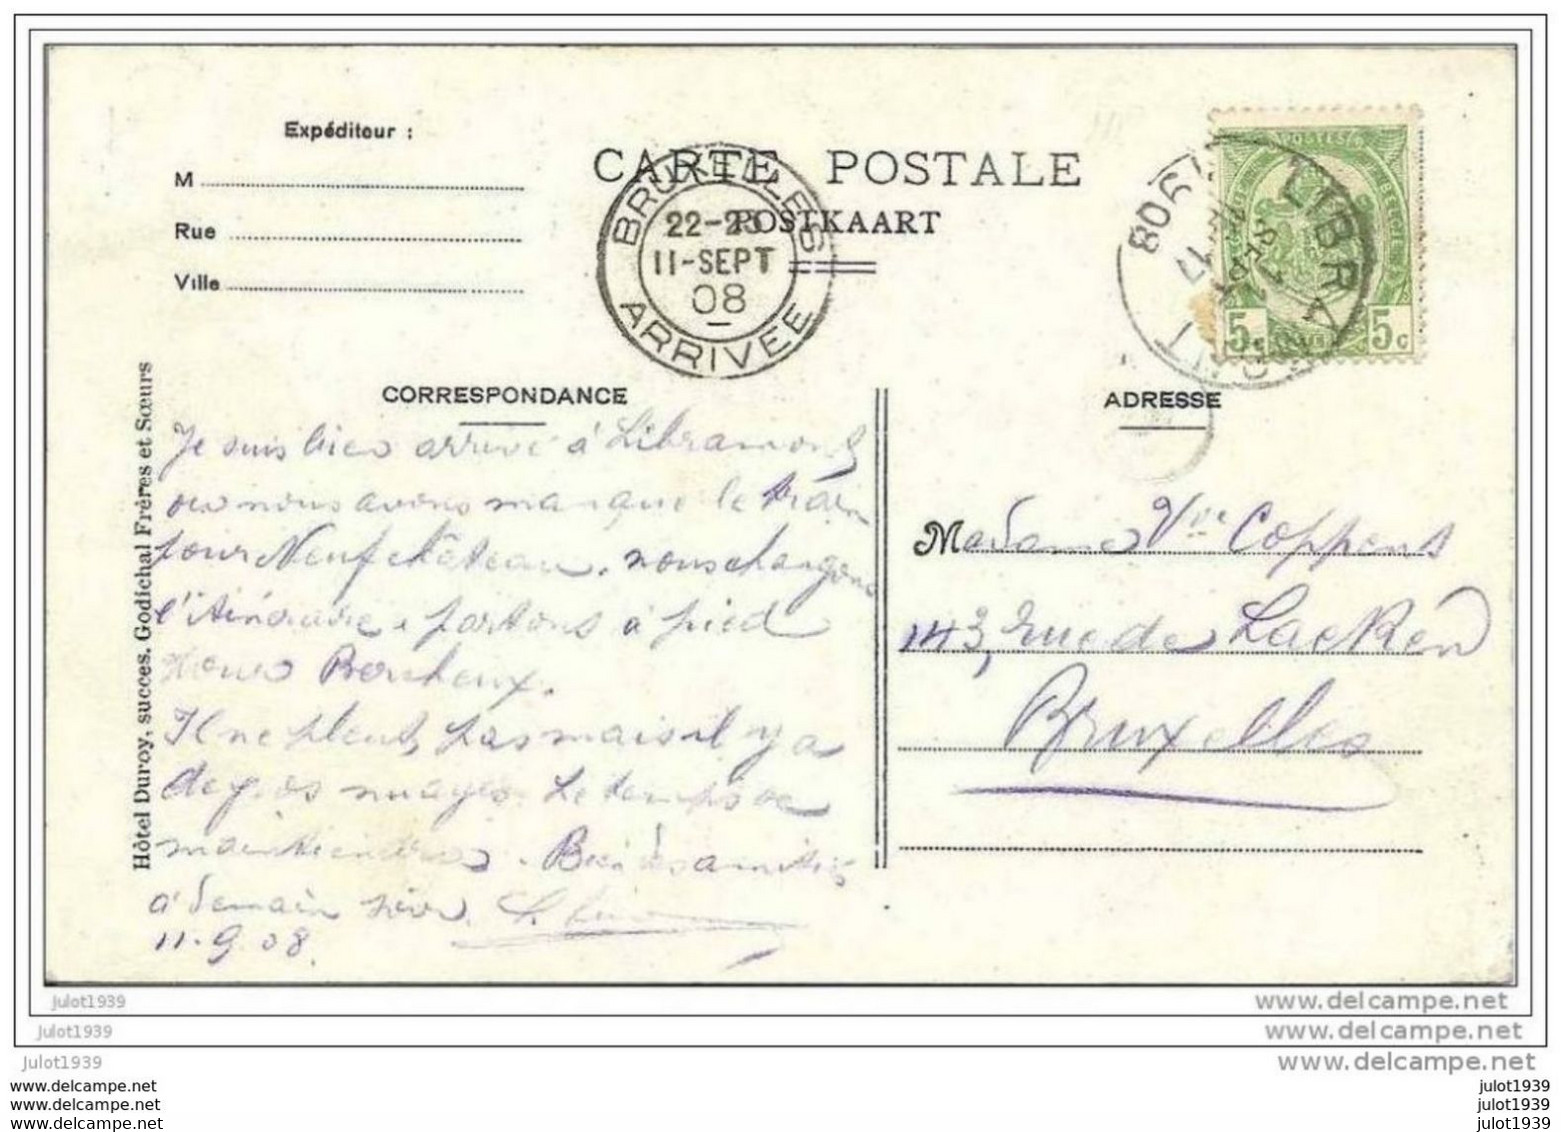 Expéditeur :
M
Rue
Ville
CARTE POSTALE
POSTKAART
BRUXELLES
22-23
11-SEPT
08
ARRIVEE
POSTES
5c 5c
LIBRAMONT
1908
CORRESPONDANCE
ADRESSE
Hôtel Duroy, succes. Godichal Frères et Sœurs
Je suis bien arrivé à Libramont
ou nous avons manque le train
pour Neufchâteau. nous changeons
l'itinéraire, partons à pied
Bercheux.
Il ne pleut pas mais il y a
de gros nuages. Le temps se
maintiendra. Bien des amitiés
à demain soir.
11.9.08.
Madame Vve Coppens
143, rue de Laeken
Bruxelles
julot1939
www.delcampe.net
julot1939
www.delcampe.net
julot1939
www.delcampe.net
www.delcampe.net
julot1939
www.delcampe.net
julot1939
www.delcampe.net
julot1939